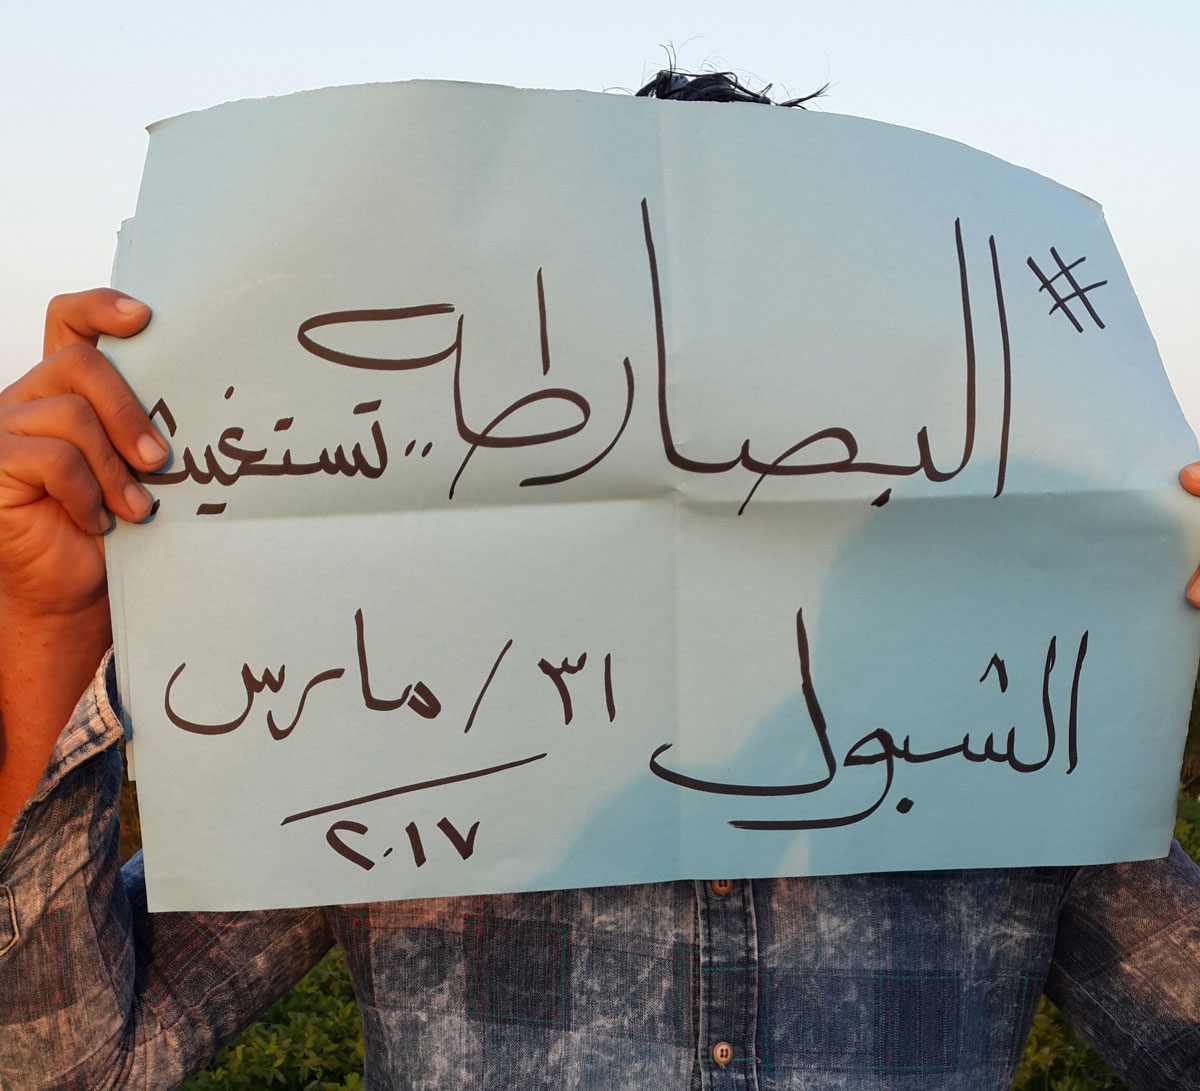 #البصارطة.. تستغيث
الشبول ٣١/مارس
٢٠١٧